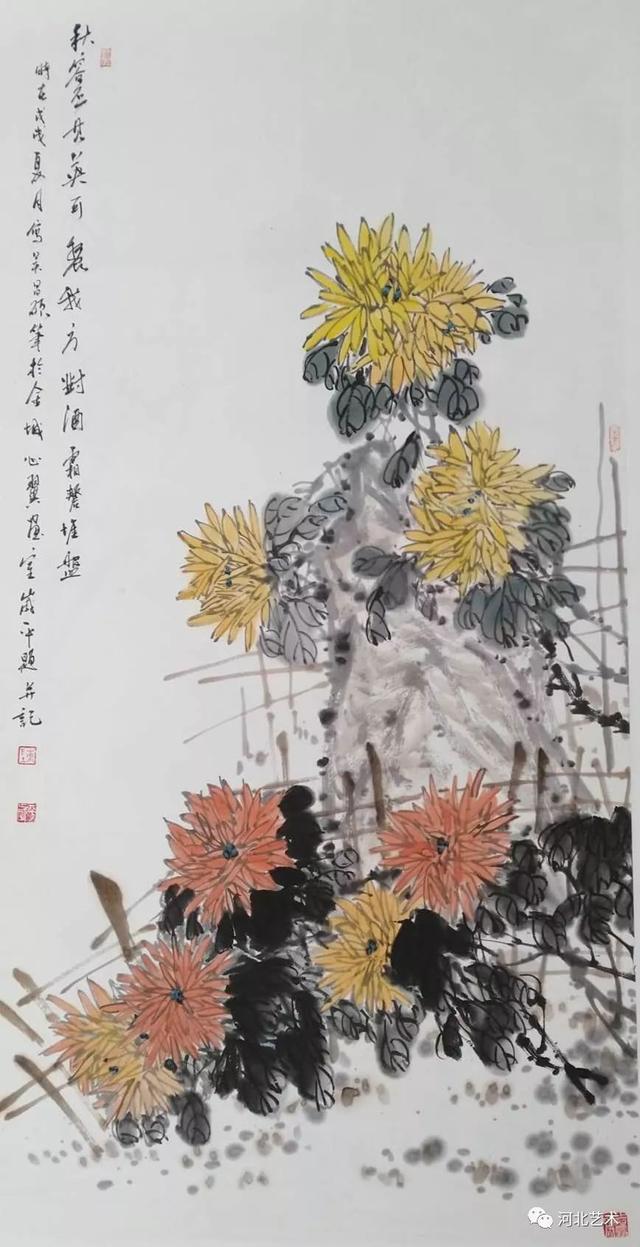 秋容其英可餐我方對酒霜螯堆盤
時在戊戌夏月寫吴昌碩筆於金城心翼畫室歲平題并記
河北艺术